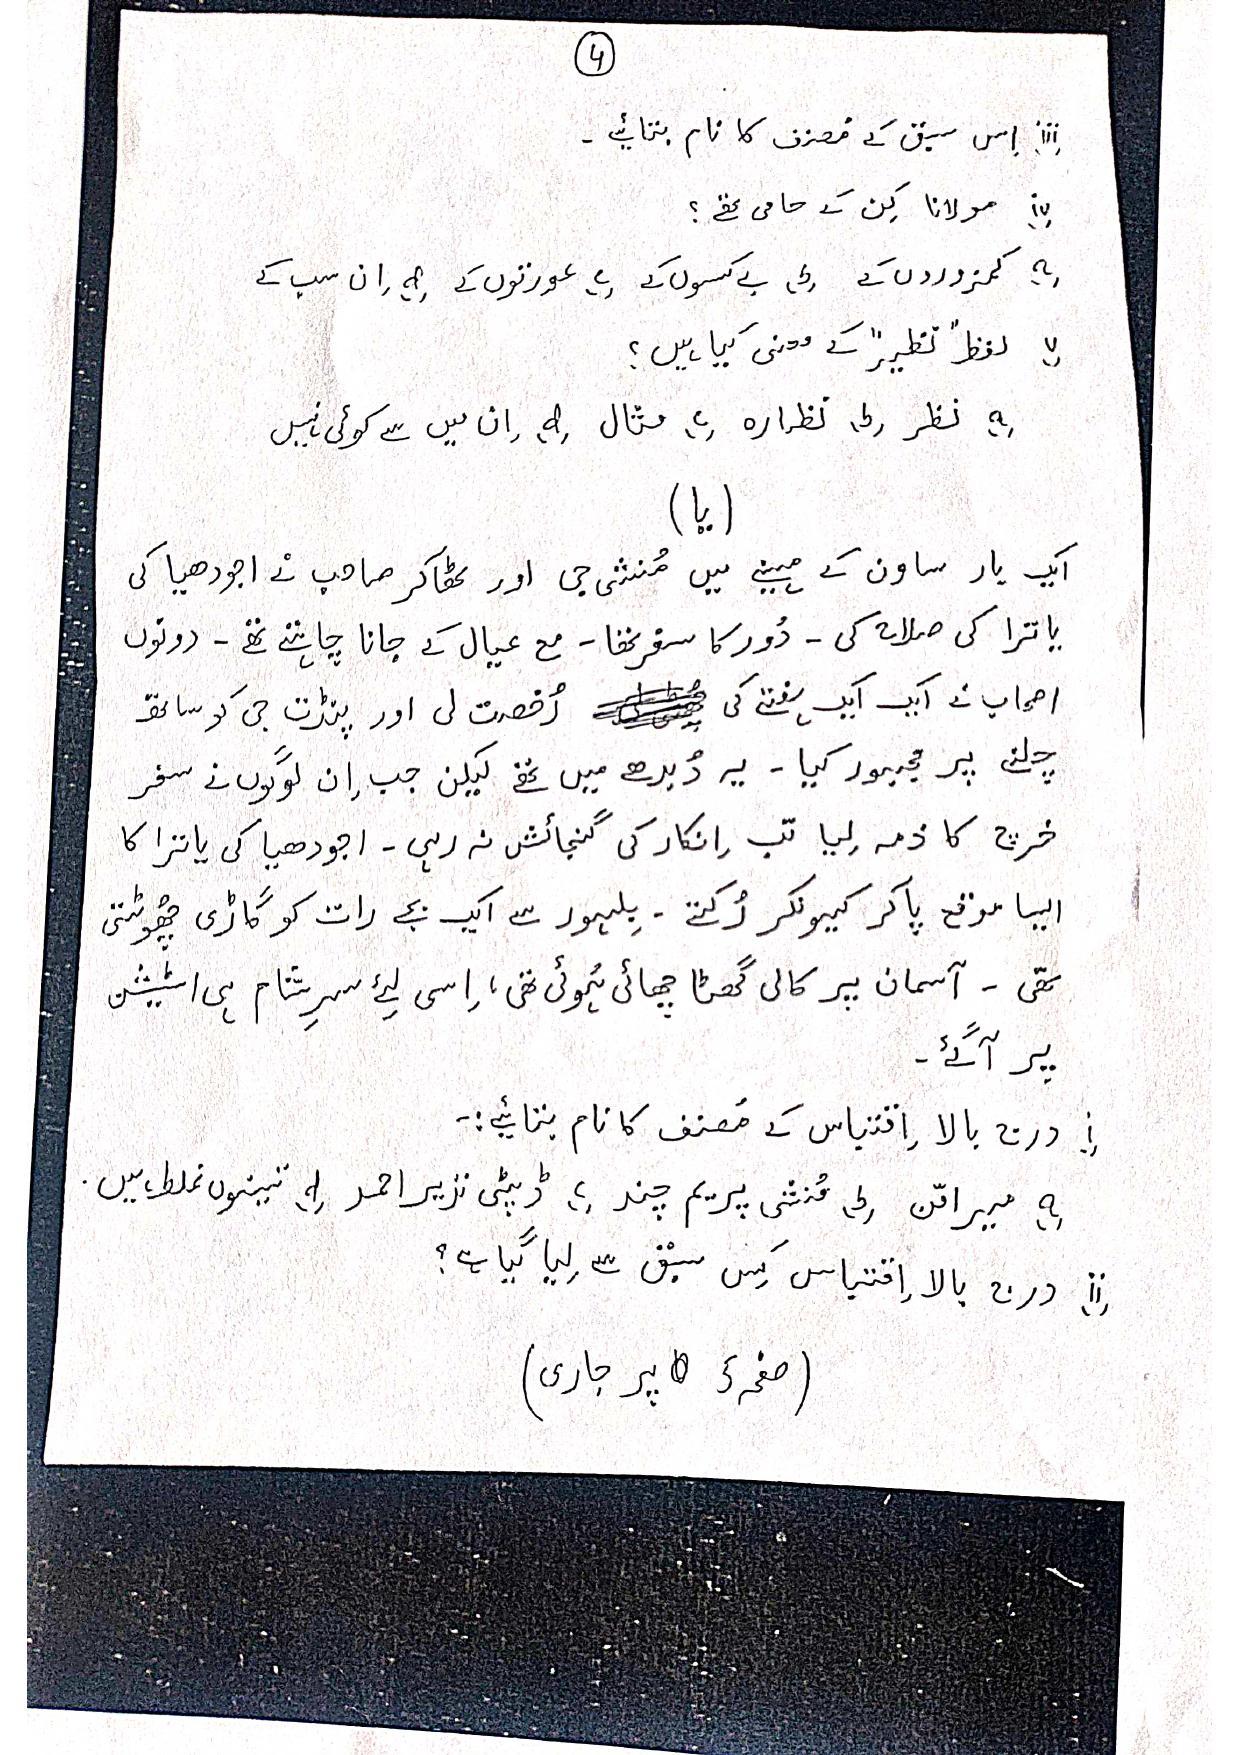 4
iii اِس سبق کے مُصنف کا نام بتائیے ۔
iv مولانا کِن کے حامی تھے ؟
a کمزوروں کے b بے کسوں کے c عورتوں کے d اِن سب کے
v لفظ "نظیر" کے معنی کیا ہیں ؟
a نظر b نظارہ c مثال d اِن میں سے کوئی نہیں
(یا)
ایک بار ساون کے مہینے میں مُنشی جی اور ٹھاکر صاحب نے اجودھیا کی
یاترا کی صلاح کی ۔ دُور کا سفر تھا ۔ مع عیال کے جانا چاہتے تھے ۔ دونوں
اصحاب نے ایک ایک ہفتے کی رُخصت لی اور پنڈت جی کو ساتھ
چلنے پر مجبور کیا ۔ یہ دُبدھے میں تھے لیکن جب اِن لوگوں نے سفر
خرچ کا ذمہ لِیا تب اِنکار کی گنجائش نہ رہی ۔ اجودھیا کی یاترا کا
ایسا موقع پاکر کیونکر رُکتے ۔ بِلہور سے ایک بجے رات کو گاڑی چھُوٹتی
تھی ۔ آسمان پر کالی گھٹا چھائی ہُوئی تھی، اِسی لِئے سرِشام ہی اسٹیشن
پر آگئے ۔
i درج بالا اِقتباس کے مُصنف کا نام بتائیے :۔
a میر امّن b مُنشی پریم چند c ڈپٹی نزیر احمد d تینوں غلط ہیں .
ii درج بالا اِقتباس کِس سبق سے لِیا گیا ہے ؟
(صفحہ 5 پر جاری)